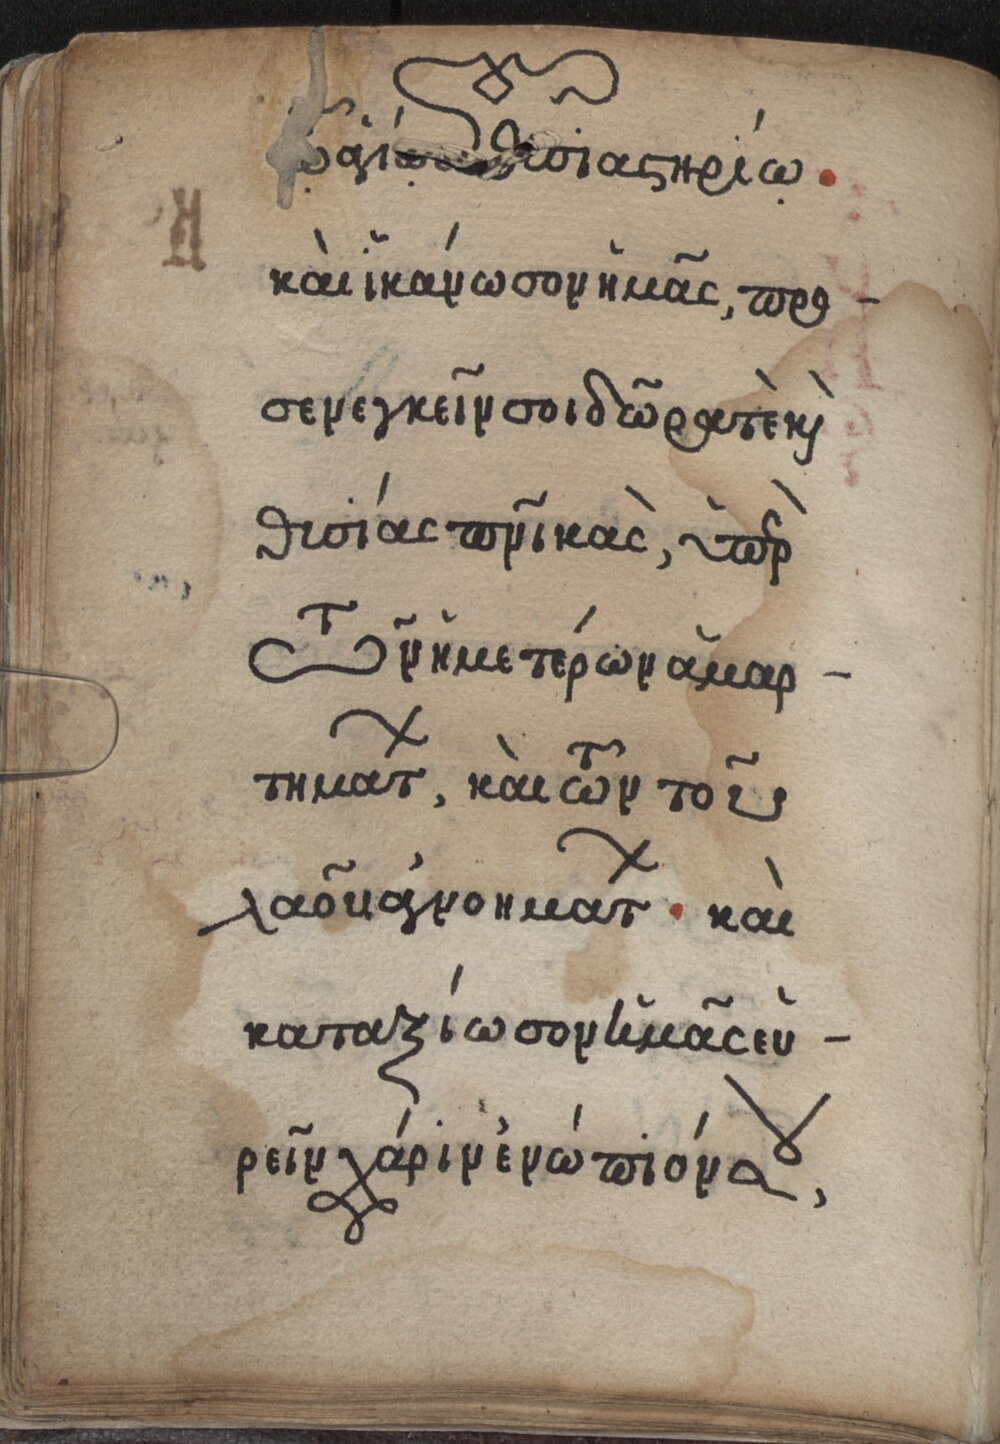 τῷ ἁγίῳ θυσιαστηρίῳ.
καὶ ἱκάνωσον ἡμᾶς, προ-
σενεγκεῖν σοι δῶρα τὲ κ̀
θυσίας πν̃ικὰς, ὑπὲρ
τῶν ἡμετέρων ἁμαρ-
τημάτ, καὶ τῶν τοῦ
λαοῦ ἀγνοημάτ. καὶ
καταξίωσον ἡμᾶς εὑ-
ρεῖν χάριν ἐνώπιόν σου,